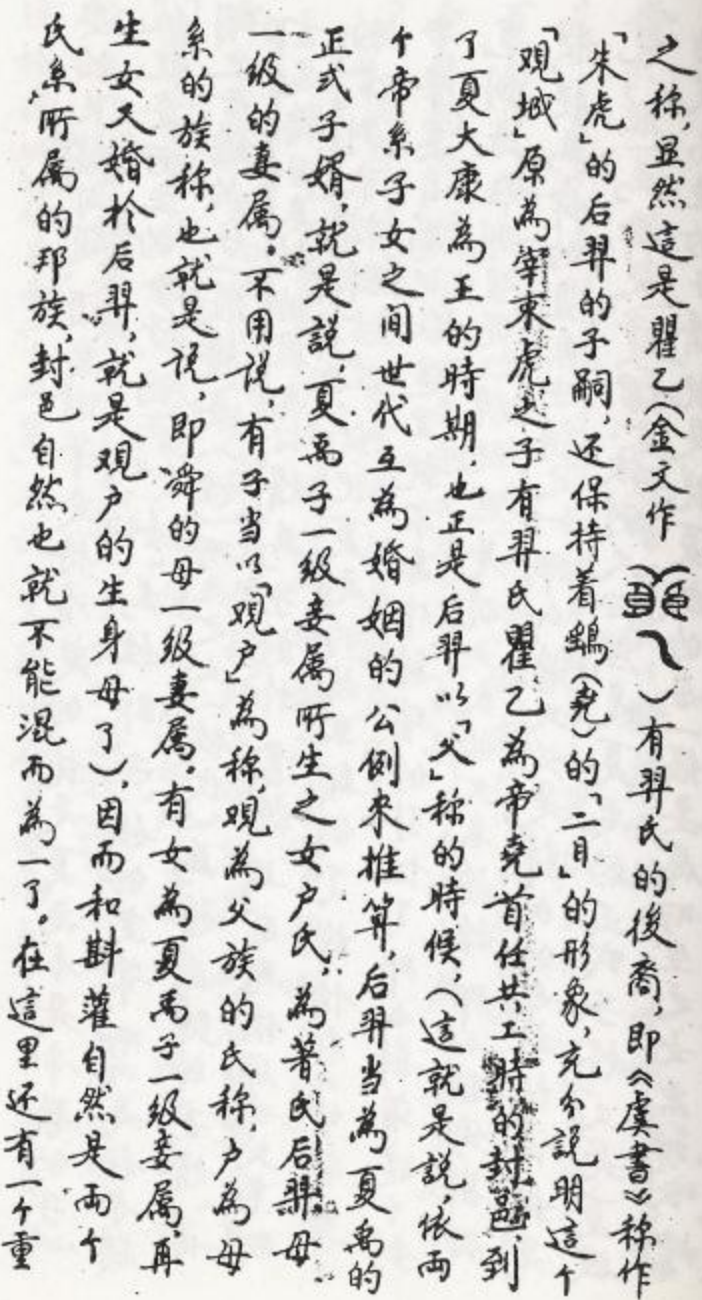 之称,显然這是瞿乙(金文作 )有羿氏的後裔,即《虞書》称作
「朱虎」的后羿的子嗣,还保持着鴟(堯)的「二目」的形象,充分説明這个
「观城」原為宰束虎之子有羿氏瞿乙為帝堯首任共工時的封邑,到
了夏大康為王的時期,也正是后羿以「父」称的時候,(這就是説,依兩
个帝系子女之间世代互為婚姻的公例来推算,后羿当為夏禹的
正式子婿,就是説,夏禹子一级妾属所生之女户氏,為著氏后羿母
一级的妻属。不用说,有子当以「观户」為称,观為父族的氏称,户為母
系的族称,也就是说,即舜的母一级妻属。有女為夏禹子一级妾属,再
生女又婚於后羿,就是观户的生身母了),因而和斟灌自然是兩个
氏系所属的邦族,封邑自然也就不能混而為一了。在這里还有一个重